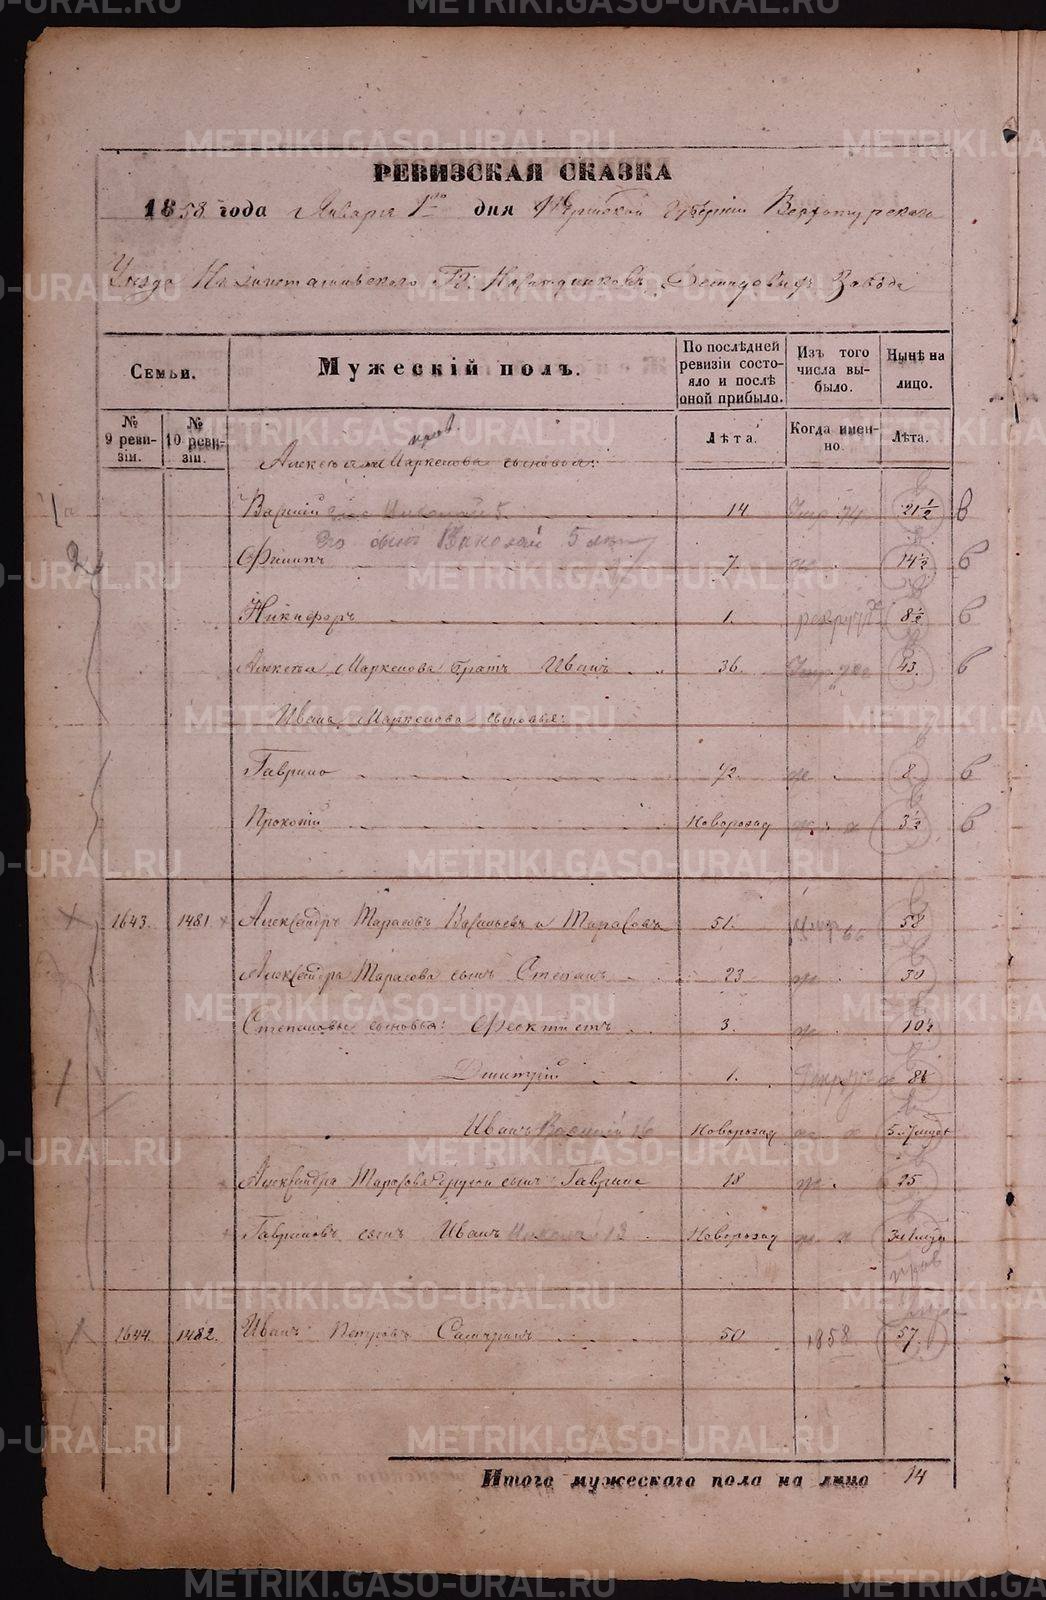 METRIKI.GASO-URAL.RU
РЕВИЗСКАЯ СКАЗКА
1858 года Января 1го дня Пермской Губернiи Верхотурскаго
Уѣзда Нижнетагильскаго Гг. Наслѣдниковъ Демидовыхъ Завода
Семьи.
Мужескiй полъ.
По послѣдней ревизiи состояло и послѣ оной прибыло.
Изъ того числа выбыло.
Нынѣ на лицо.
№ 9 ревизiи.
№ 10 ревизiи.
Лѣта.
Когда именно.
Лѣта.
Алексѣя Маркелова сыновья:
Василiй 14 21½ в
Его сынъ Николай 5
Филипъ 7. 14½ в
Никифоръ 1. рекрутъ 8½ в
Алексѣя Маркелова братъ Иванъ 36. 43. в
Ивана Маркелова сыновья:
Гаврило ½. 8. в
Прокопiй Новорожд 3½ в
1643. 1481 Александръ Тарасовъ Васильевъ и Тарасовъ 51. Умер 66 58
Александра Тарасова сынъ Степанъ 23 30
Степановы сыновья: Феоктистъ 3. 10½
Дмитрiй 1. Рекрутъ 8½
Иванъ Василiй 16 Новорожд
Александра Тарасова другой сынъ Гаврило 18 25
Гавриловъ сынъ Иванъ Новорожд
1644. 1482. Иванъ Петровъ 50 1858 57.
Итого мужескаго пола на лицо 14